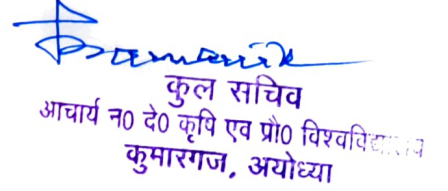 कुल सचिव
आचार्य न0 दे0 कृषि एव प्रौ0 विश्वविद्यालय
कुमारगज, अयोध्या